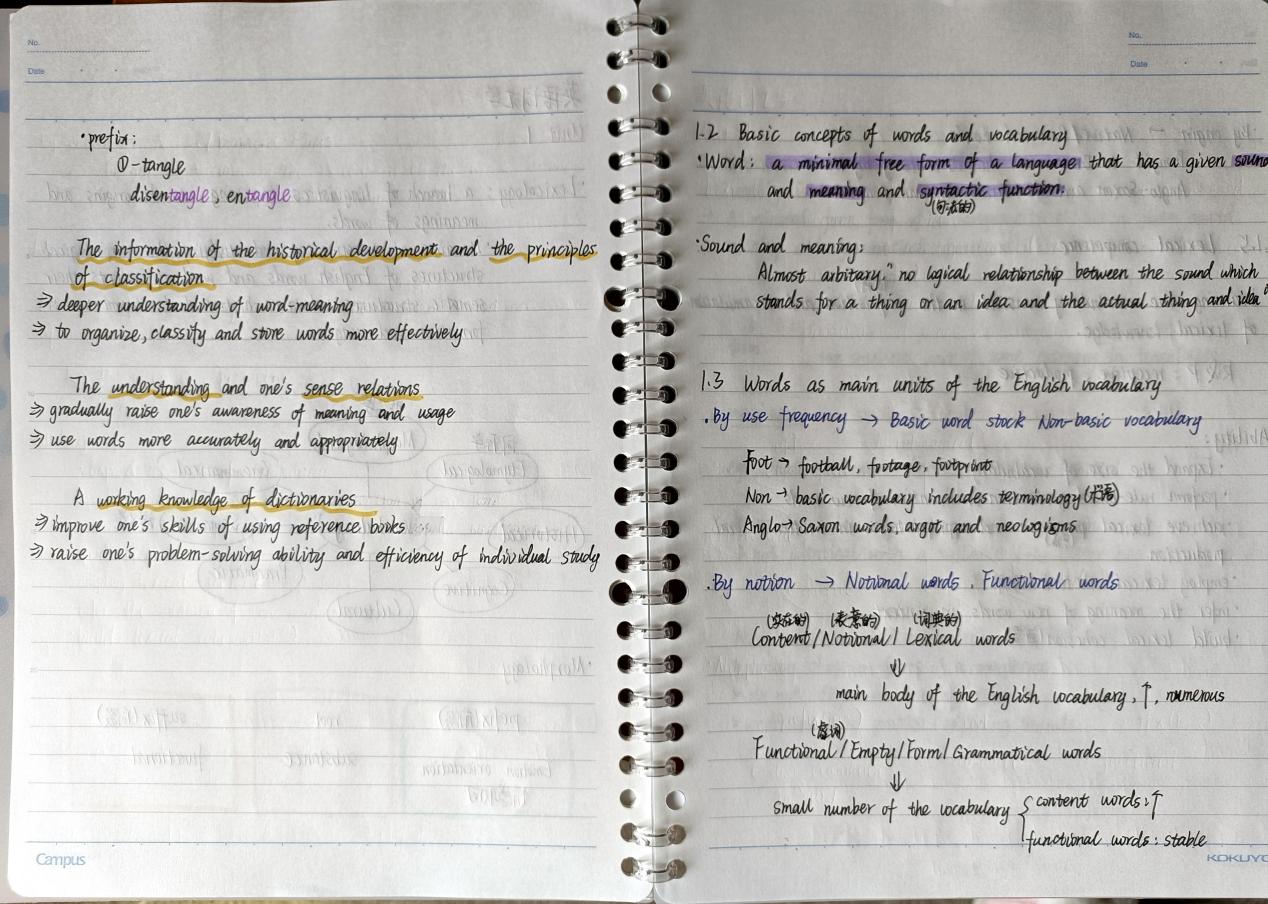 No.
Date
·prefix:
①-tangle
disentangle, entangle
The information of the historical development and the principles
of classification
⇒ deeper understanding of word-meaning
⇒ to organize, classify and store words more effectively
The understanding and one's sense relations
⇒ gradually raise one's awareness of meaning and usage
⇒ use words more accurately and appropriately
A working knowledge of dictionaries
⇒ improve one's skills of using reference books
⇒ raise one's problem-solving ability and efficiency of individual study
Campus
No.
Date
1.2 Basic concepts of words and vocabulary
·Word: a minimal free form of a language that has a given sound
and meaning and syntactic function.
(句法的)
·Sound and meaning:
Almost arbitary, "no logical relationship between the sound which
stands for a thing or an idea and the actual thing and idea"
1.3 Words as main units of the English vocabulary
·By use frequency → Basic word stock Non-basic vocabulary
Foot → football, footage, footprints
Non → basic vocabulary includes terminology (术语)
Anglo → Saxon words, argot and neologisms
·By notion → Notional words. Functional words
(实在的) (表意的) (词典的)
Content/Notional/Lexical words
⇓
main body of the English vocabulary, ↑, numerous
(虚词)
Functional/Empty/Form/Grammatical words
⇓
small number of the vocabulary { content words: ↑
functional words: stable
KOKUYO